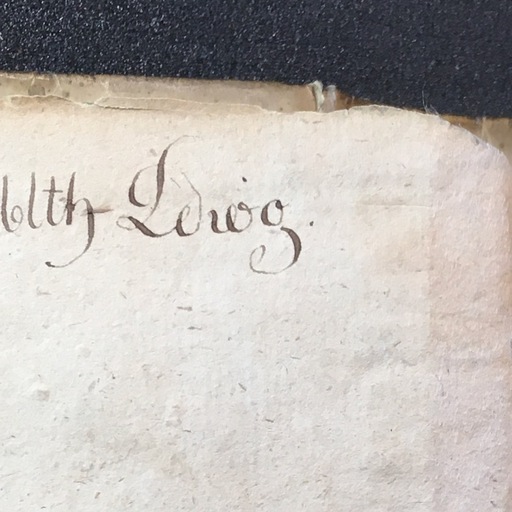 blth Ldwig.